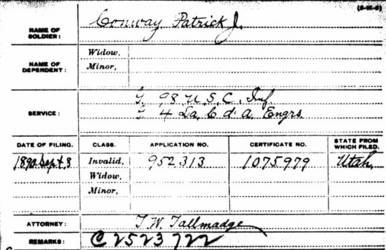 (3-2?-6)
NAME OF SOLDIER: Conway Patrick J.
NAME OF DEPENDENT: Widow,
Minor,
SERVICE: G. 98 U.S.C. Inf.
G 4 La. C d'A Engrs.
DATE OF FILING. CLASS. APPLICATION NO. CERTIFICATE NO. STATE FROM WHICH FILED.
1890 Sept 8 Invalid, 952313 1075979 Utah,
Widow,
Minor,
ATTORNEY: T. W. Tallmadge
REMARKS: C 2523722